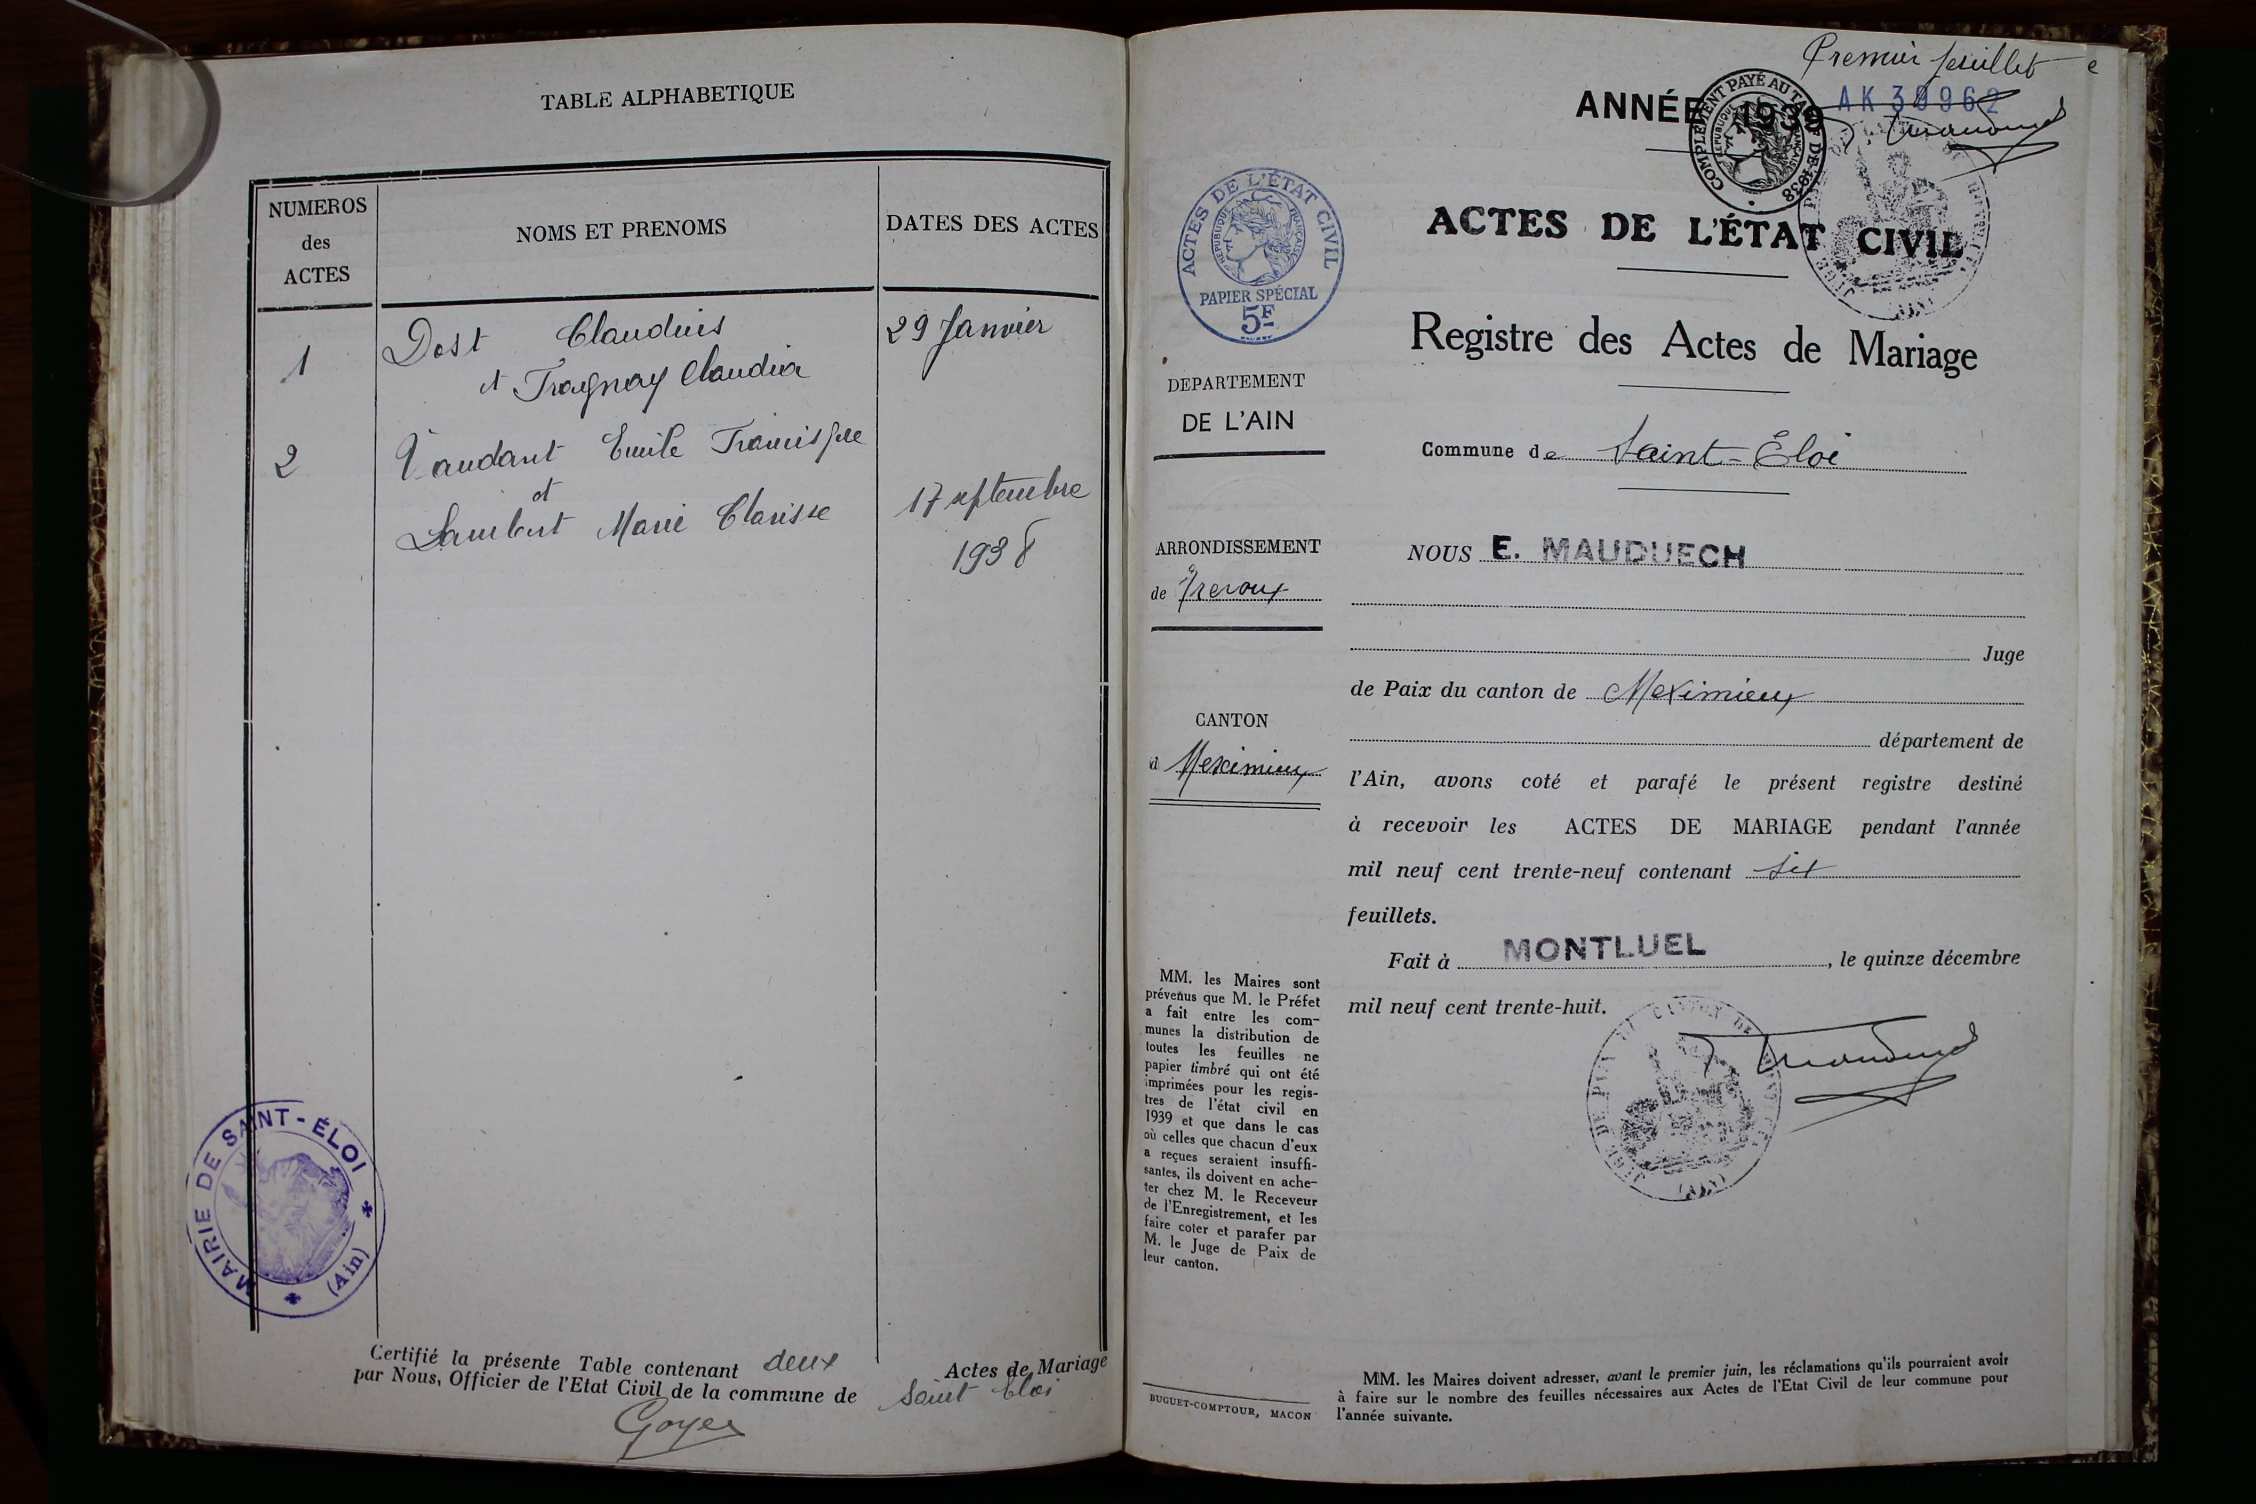 TABLE ALPHABETIQUE
NUMEROS des ACTES
NOMS ET PRENOMS
DATES DES ACTES
1
Dost Claudius
29 Janvier
et Fragnay Claudia
2
Vaudant Emile Francisque
et
17 septembre
Lambert Marie Clarisse
1938
MAIRIE DE SAINT-ÉLOI
(Ain)
Certifié la présente Table contenant deux Actes de Mariage
par Nous, Officier de l'Etat Civil de la commune de Saint Eloi
Goyer
Premier feuillet
e
AK 39962
ANNÉE 1939
COMPLÉMENT PAYÉ AU TARIF DE 1938
RÉPUBLIQUE FRANÇAISE
ACTES DE L'ÉTAT CIVIL
RÉPUBLIQUE FRANÇAISE
PAPIER SPÉCIAL
5F
ACTES DE L'ÉTAT CIVIL
Registre des Actes de Mariage
DEPARTEMENT
DE L'AIN
Commune de Saint-Eloi
ARRONDISSEMENT
de Trevoux
CANTON
d Meximieux
MM. les Maires sont
prévenus que M. le Préfet
a fait entre les com-
munes la distribution de
toutes les feuilles ne
papier timbré qui ont été
imprimées pour les regis-
tres de l'état civil en
1939 et que dans le cas
où celles que chacun d'eux
a reçues seraient insuffi-
santes, ils doivent en ache-
ter chez M. le Receveur
de l'Enregistrement, et les
faire coter et parafer par
M. le Juge de Paix de
leur canton.
BUGUET-COMPTOUR, MACON
NOUS E. MAUDUECH
Juge
de Paix du canton de Meximieux
département de
l'Ain, avons coté et parafé le présent registre destiné
à recevoir les ACTES DE MARIAGE pendant l'année
mil neuf cent trente-neuf contenant six
feuillets.
Fait à MONTLUEL, le quinze décembre
mil neuf cent trente-huit.
(AIN)
MM. les Maires doivent adresser, avant le premier juin, les réclamations qu'ils pourraient avoir
à faire sur le nombre des feuilles nécessaires aux Actes de l'Etat Civil de leur commune pour
l'année suivante.